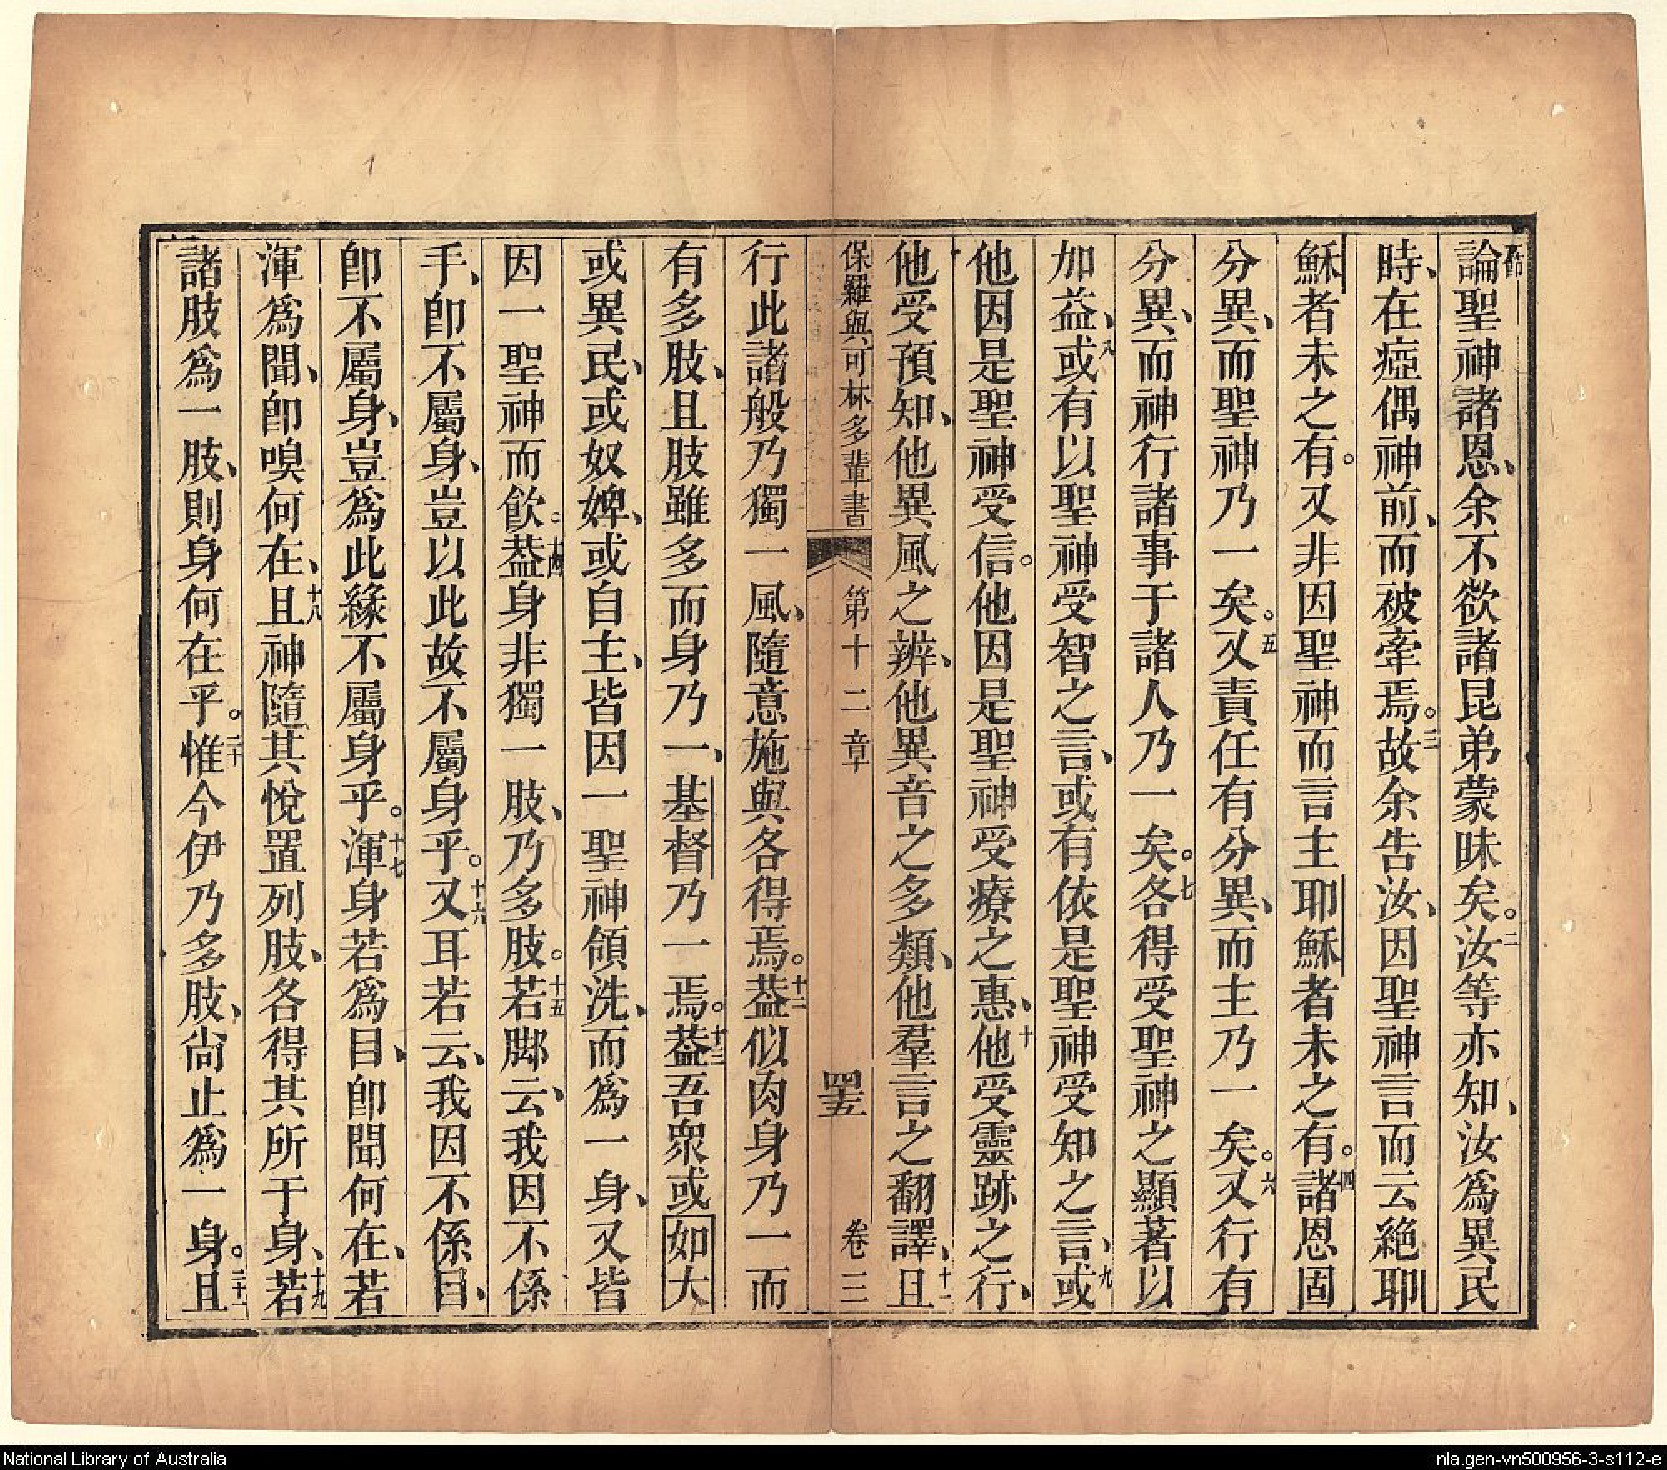 論聖神諸恩、余不欲諸昆弟蒙昧矣。二汝等亦知、汝爲異民
時、在瘂偶神前、而被牽焉。三故余告汝、因聖神言而云絕耶
穌者未之有。又非因聖神而言主耶穌者未之有。四諸恩固
分異、而聖神乃一矣。五又責任有分異、而主乃一矣。六又行有
分異、而神行諸事于諸人乃一矣。七各得受聖神之顯著以
加益、八或有以聖神受智之言、或有依是聖神受知之言、九或
他因是聖神受信。他因是聖神受療之惠、十他受靈跡之行、
他受預知、他異風之辨、他異音之多類、他羣言之翻譯、十一且
保羅與可林多輩書 第十二章 四十五 卷三
行此諸般乃獨一風、隨意施與各得焉。十二葢似肉身乃一而
有多肢、且肢雖多而身乃一、基督乃一焉。十三葢吾衆或如大
或異民、或奴婢、或自主、皆因一聖神領洗、而爲一身、又皆
因一聖神而飲。十四葢身非獨一肢、乃多肢。十五若脚云、我因不係
手、卽不屬身、豈以此故不屬身乎。十六又耳若云、我因不係目、
卽不屬身、豈爲此緣不屬身乎。十七渾身若爲目、卽聞何在、若
渾爲聞、卽嗅何在、十八且神隨其悅置列肢、各得其所于身、十九若
諸肢爲一肢、則身何在乎。二十惟今伊乃多肢、尙止爲一身。二十一且
National Library of Australia
nla.gen-vn500956-3-s112-e